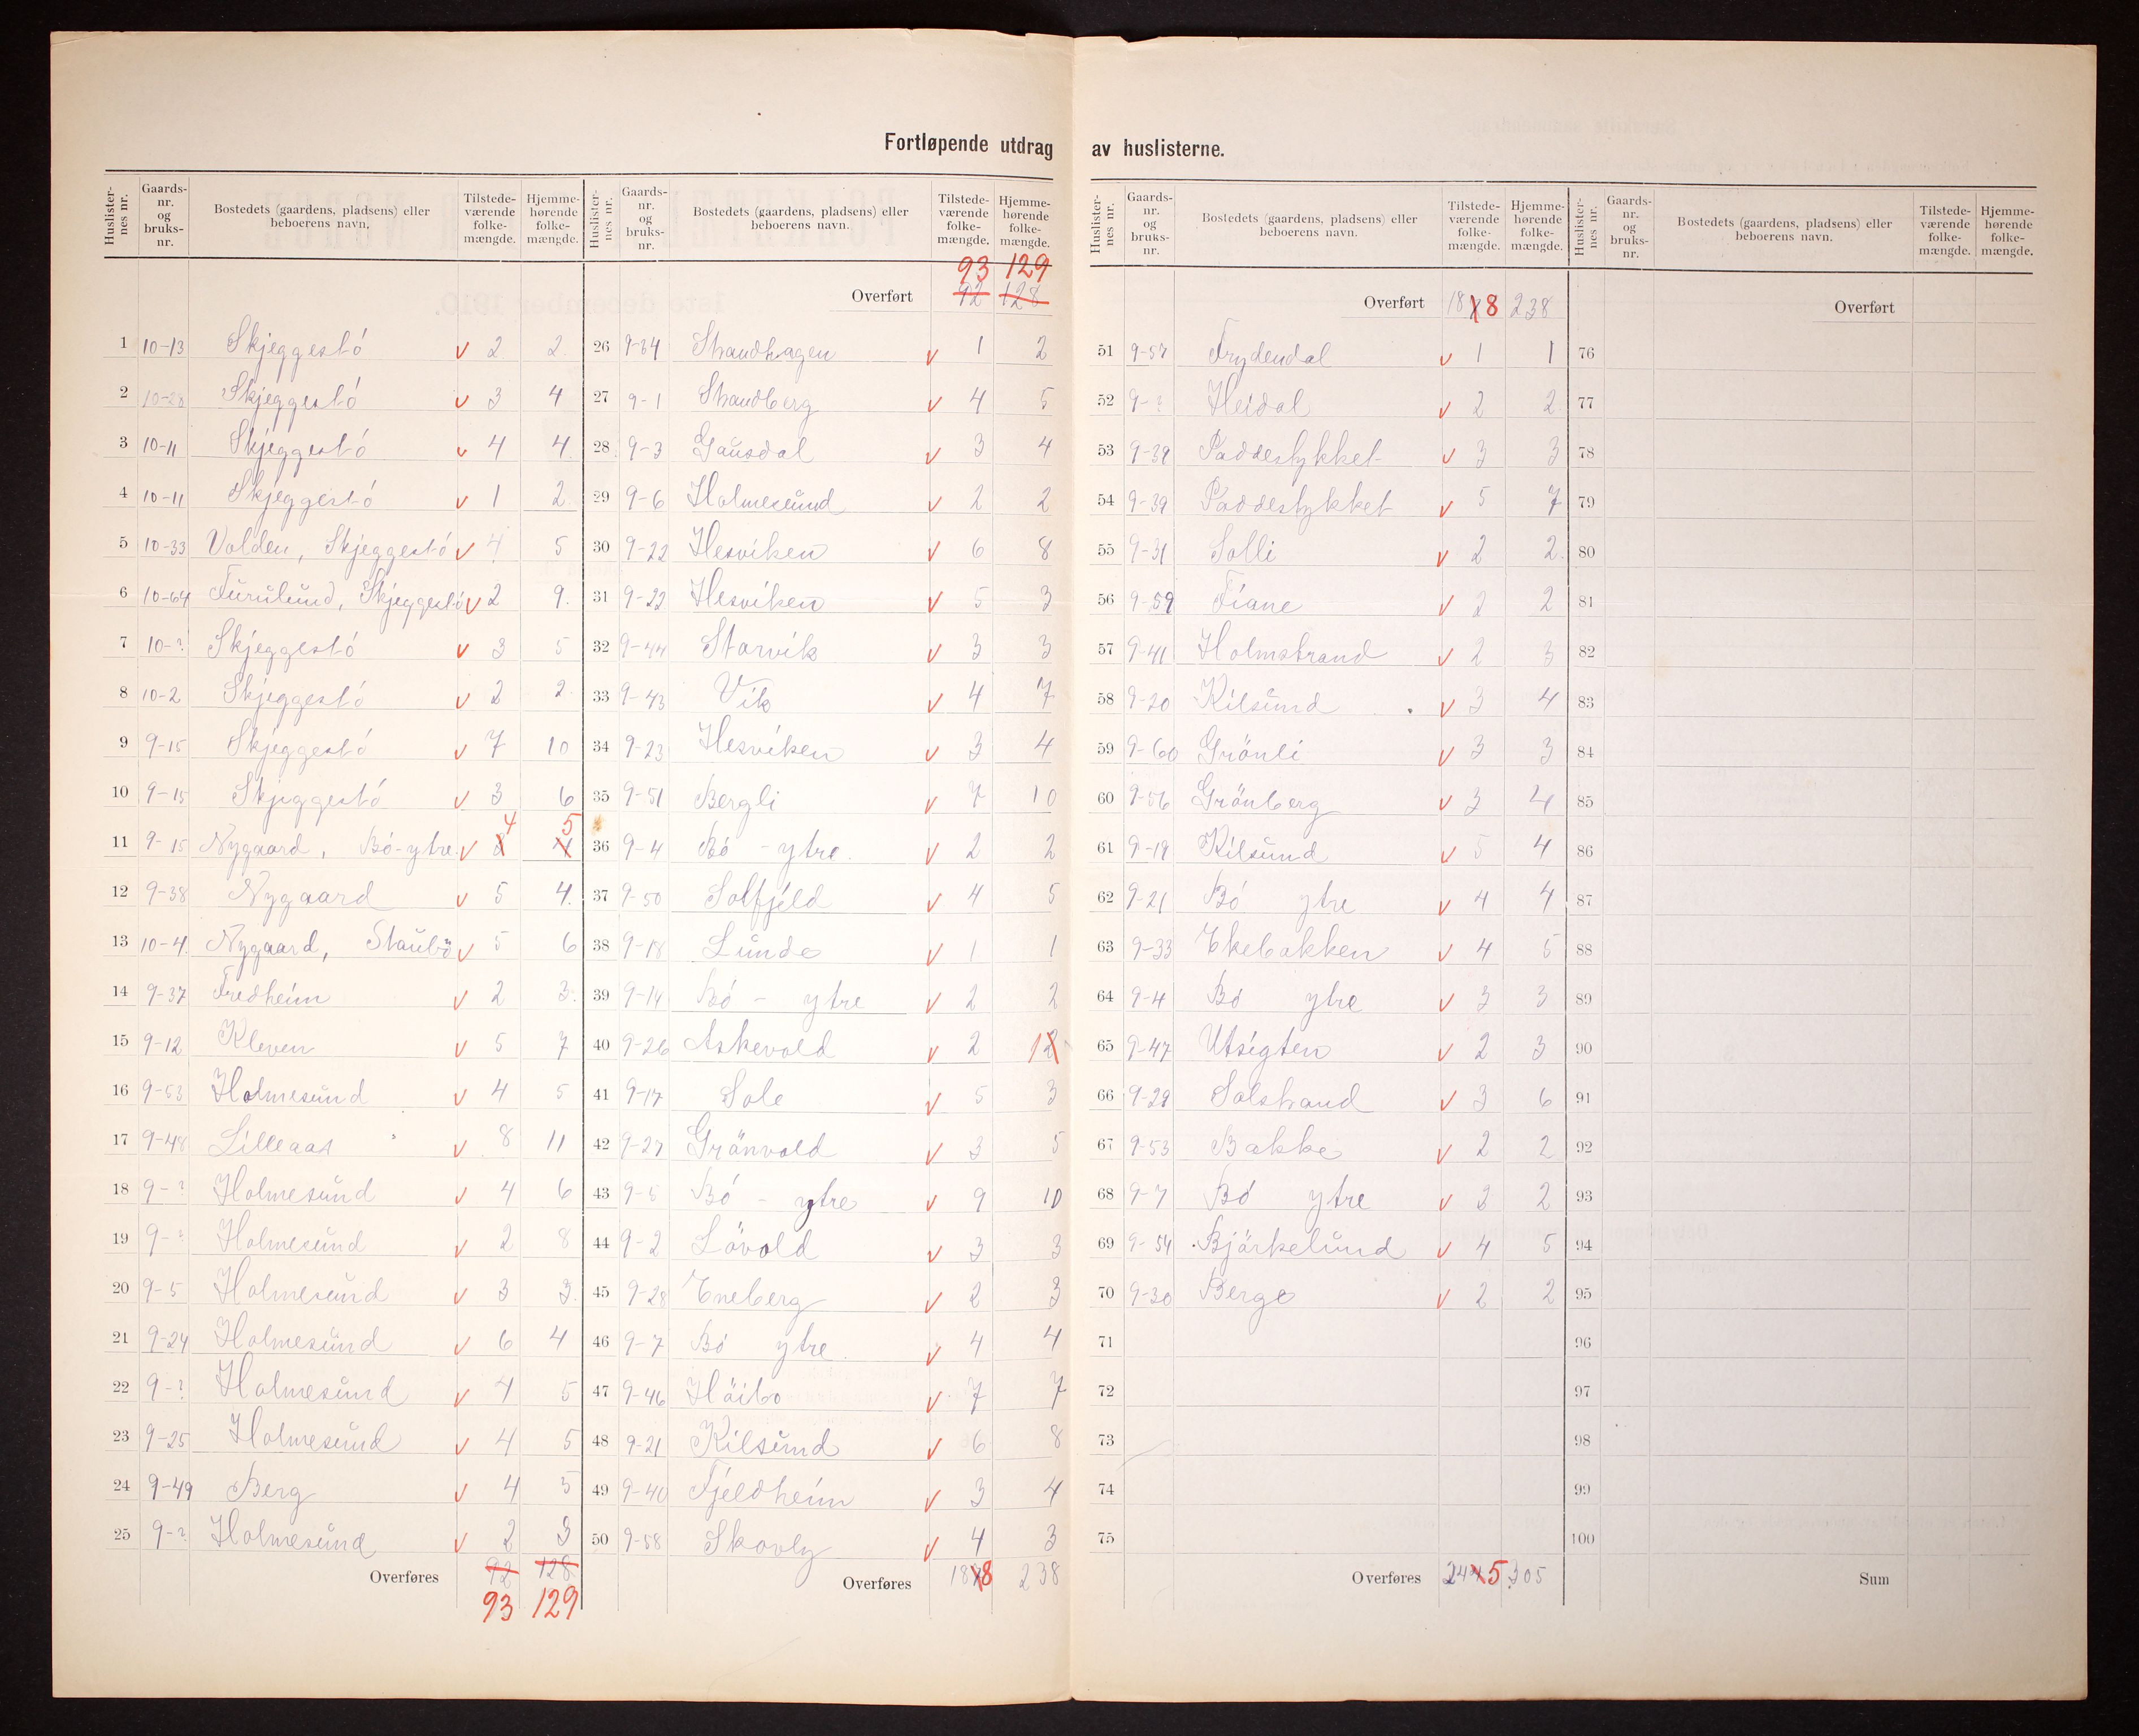 Fortløpende utdrag av huslisterne.
Huslister-nes nr. Gaards-nr. og bruks-nr. Bostedets (gaardens, pladsens) eller beboerens navn. Tilstede-værende folke-mængde. Hjemme-hørende folke-mængde.
1 10-13 Skjeggestö v 2 2
2 10-28 Skjeggestö v 3 4
3 10-11 Skjeggestö v 4 4
4 10-11 Skjeggestö v 1 2
5 10-33 Volden, Skjeggestö v 4 5
6 10-64 Furulund, Skjeggestö v 2 9.
7 10-? Skjeggestö v 3 5
8 10-2 Skjeggestö v 2 2
9 9-15 Skjeggestö v 7 10
10 9-15 Skjeggestö v 3 6
11 9-15 Nygaard, Bö-ytre. v 4 5
12 9-38 Nygaard v 5 4.
13 10-4. Nygaard, Staubö v 5 6
14 9-37 Fredheim v 2 3.
15 9-12 Kleven v 5 7
16 9-53 Holmesund v 4 5
17 9-48 Lilleaas v 8 11
18 9-? Holmesund v 4 6
19 9-? Holmesund v 2 8
20 9-5 Holmesund v 3 3.
21 9-24 Holmesund v 6 4
22 9-? Holmesund v 4 5
23 9-25 Holmesund v 4 5
24 9-49 Berg v 4 5
25 9-? Holmesund v 2 3
Overføres 92 128
93 129
Huslister-nes nr. Gaards-nr. og bruks-nr. Bostedets (gaardens, pladsens) eller beboerens navn. Tilstede-værende folke-mængde. Hjemme-hørende folke-mængde.
93 129
Overført 92 128
26 9-34 Strandhagen v 1 2
27 9-1 Strandberg v 4 5
28 9-3 Gausdal v 3 4
29 9-6 Holmesund v 2 2
30 9-22 Hesviken v 6 8
31 9-22 Hesviken v 5 3
32 9-44 Starvik v 3 3
33 9-43 Vik v 4 7
34 9-23 Hesviken v 3 4
35 9-51 Bergli v 7 10
36 9-4 Bö - ytre. v 2 2
37 9-50 Solfjeld v 4 5
38 9-18 Lunde v 1 1
39 9-14 Bö - ytre v 2 2
40 9-26 Askevold v 2 1
41 9-17 Sole v 5 3
42 9-27 Grönvold v 3 5
43 9-5 Bö - ytre v 9 10
44 9-2 Lövold v 3 3
45 9-28 Eneberg v 2 3
46 9-7 Bö ytre v 4 4
47 9-46 Höibo v 7 7
48 9-21 Kilsund v 6 8
49 9-40 Fjeldheim v 3 4
50 9-58 Skovly v 4 3
Overføres 188 238
Huslister-nes nr. Gaards-nr. og bruks-nr. Bostedets (gaardens, pladsens) eller beboerens navn. Tilstede-værende folke-mængde. Hjemme-hørende folke-mængde.
Overført 188 238
51 9-57 Frydendal v 1 1
52 9-? Heidal v 2 2
53 9-39 Paddestykket v 3 3
54 9-39 Paddestykket v 5 7
55 9-31 Solli v 2 2.
56 9-59 Tiane v 2 2
57 9-41 Holmstrand v 2 3
58 9-20 Kilsund v 3 4
59 9-60 Grönli v 3 3
60 9-56 Grönberg v 3 4
61 9-19 Kilsund v 5 4
62 9-21 Bö ytre v 4 4
63 9-33 Ekebakken v 4 5
64 9-4 Bö ytre v 3 3
65 9-47 Utsigten v 2 3
66 9-29 Solstrand v 3 6
67 9-53 Bakke v 2 2
68 9-7 Bö ytre v 2 2
69 9-54 Björkelund v 4 5
70 9-30 Berge v 2 2
71
72
73
74
75
Overføres 245 305
Huslister-nes nr. Gaards-nr. og bruks-nr. Bostedets (gaardens, pladsens) eller beboerens navn. Tilstede-værende folke-mængde. Hjemme-hørende folke-mængde.
Overført
76
77
78
79
80
81
82
83
84
85
86
87
88
89
90
91
92
93
94
95
96
97
98
99
100
Sum